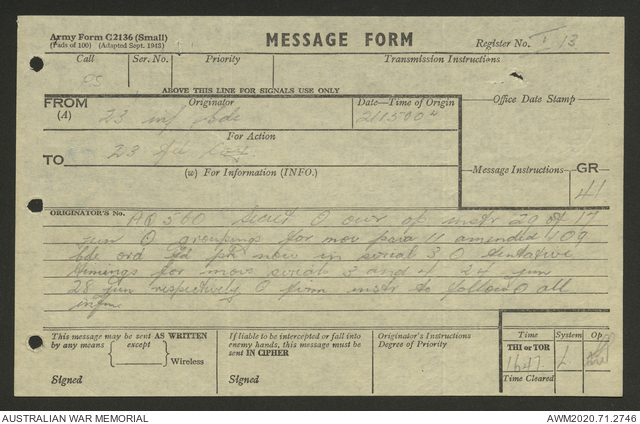 Army Form C2136 (Small)
(Pads of 100) (Adapted Sept. 1943)
MESSAGE FORM
Register No. 13
Call
Ser. No.
Priority
Transmission Instructions
ABOVE THIS LINE FOR SIGNALS USE ONLY
FROM
(A)
Originator
23 inf bde
Date—Time of Origin
211500
Office Date Stamp
For Action
TO
23 fd
(w) For Information (INFO.)
Message Instructions
GR
41
ORIGINATOR'S No.
AQ 560 Secret O our op instr 20 of 17
jun O groupings for mov para 11 amended 109
bde ord fd pk now in serial 3 O tentative
timings for movs serials 3 and 4 24 jun
28 jun respectively O firm instr to follow O all
infm
This message may be sent AS WRITTEN
by any means
except
Wireless
Signed
If liable to be intercepted or fall into
enemy hands, this message must be
sent IN CIPHER
Signed
Originator's Instructions
Degree of Priority
Time
System
Op
THI or TOR
1647
L
Time Cleared
AUSTRALIAN WAR MEMORIAL
AWM2020.71.2746